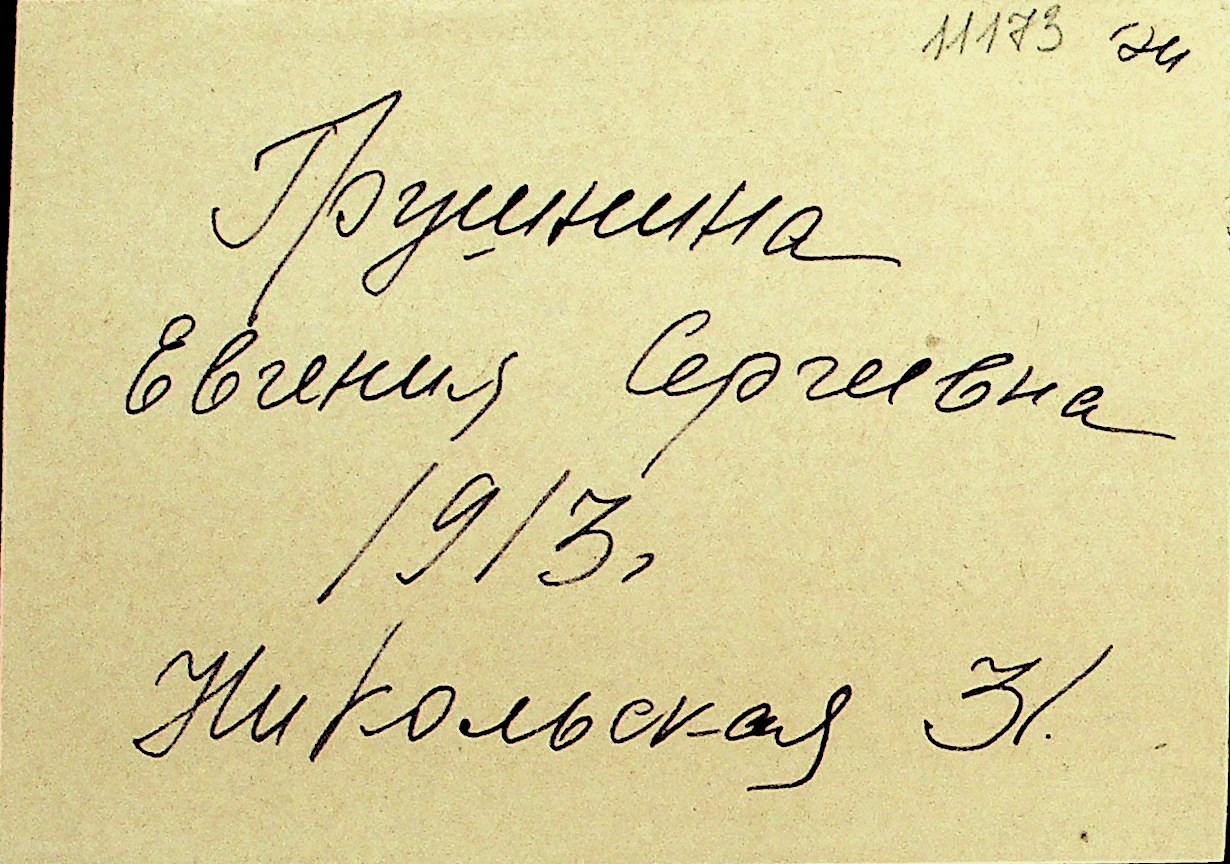 11173
Грушнина
Евгения Сергеевна
1913г
Никольская 31.